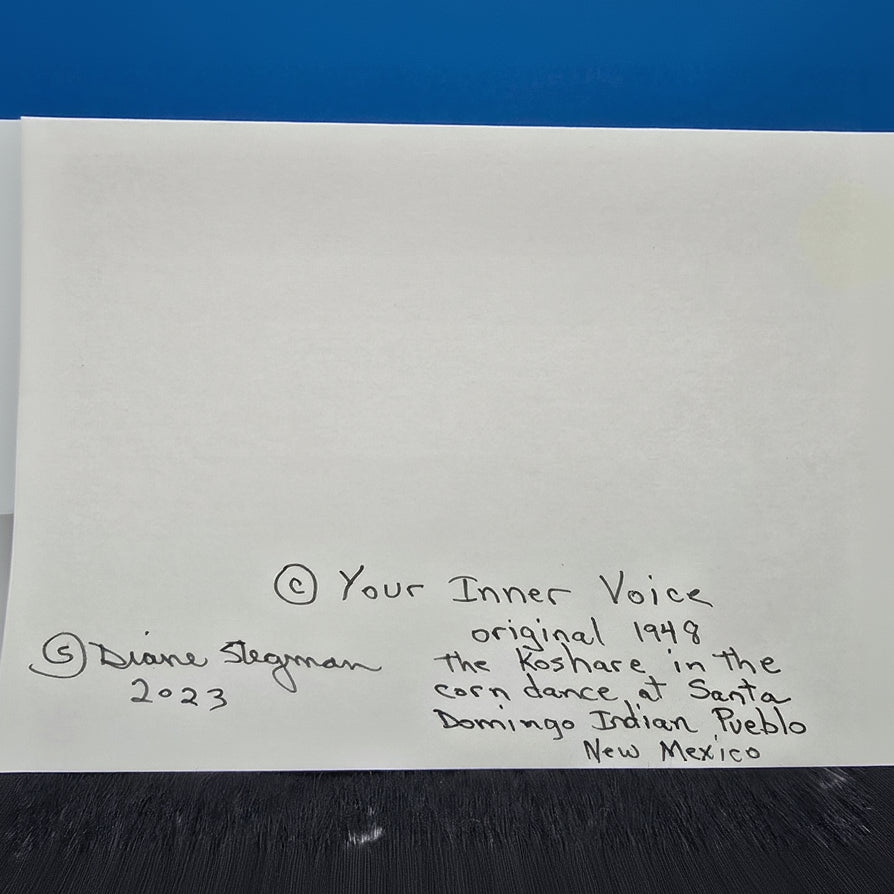 © Your Inner Voice
original 1948
the Koshare in the
corn dance at Santa
Domingo Indian Pueblo
New Mexico
Ⓢ Diane Stegman
2023